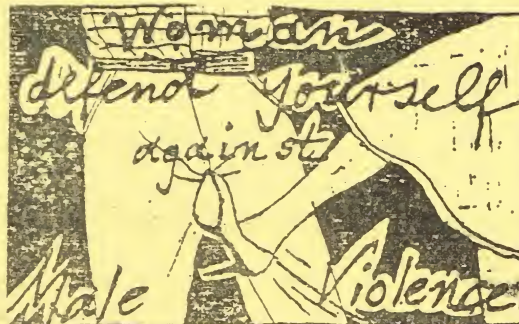 Woman
defend yourself
against
Male Violence